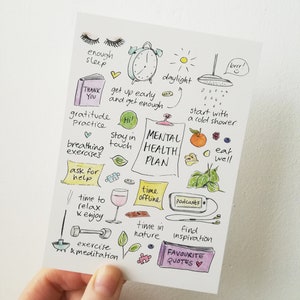 enough
sleep
brr!
daylight
THANK
YOU
get up early
and get enough
start with
a cold shower
gratitude
practice
Hi!
stay in
touch
MENTAL
HEALTH
PLAN
breathing
exercises
eat
well
ask for
help
time
offline
time to
relax
& enjoy
PODCASTS
time in
nature
find
inspiration
exercise
& meditation
FAVOURITE
QUOTES